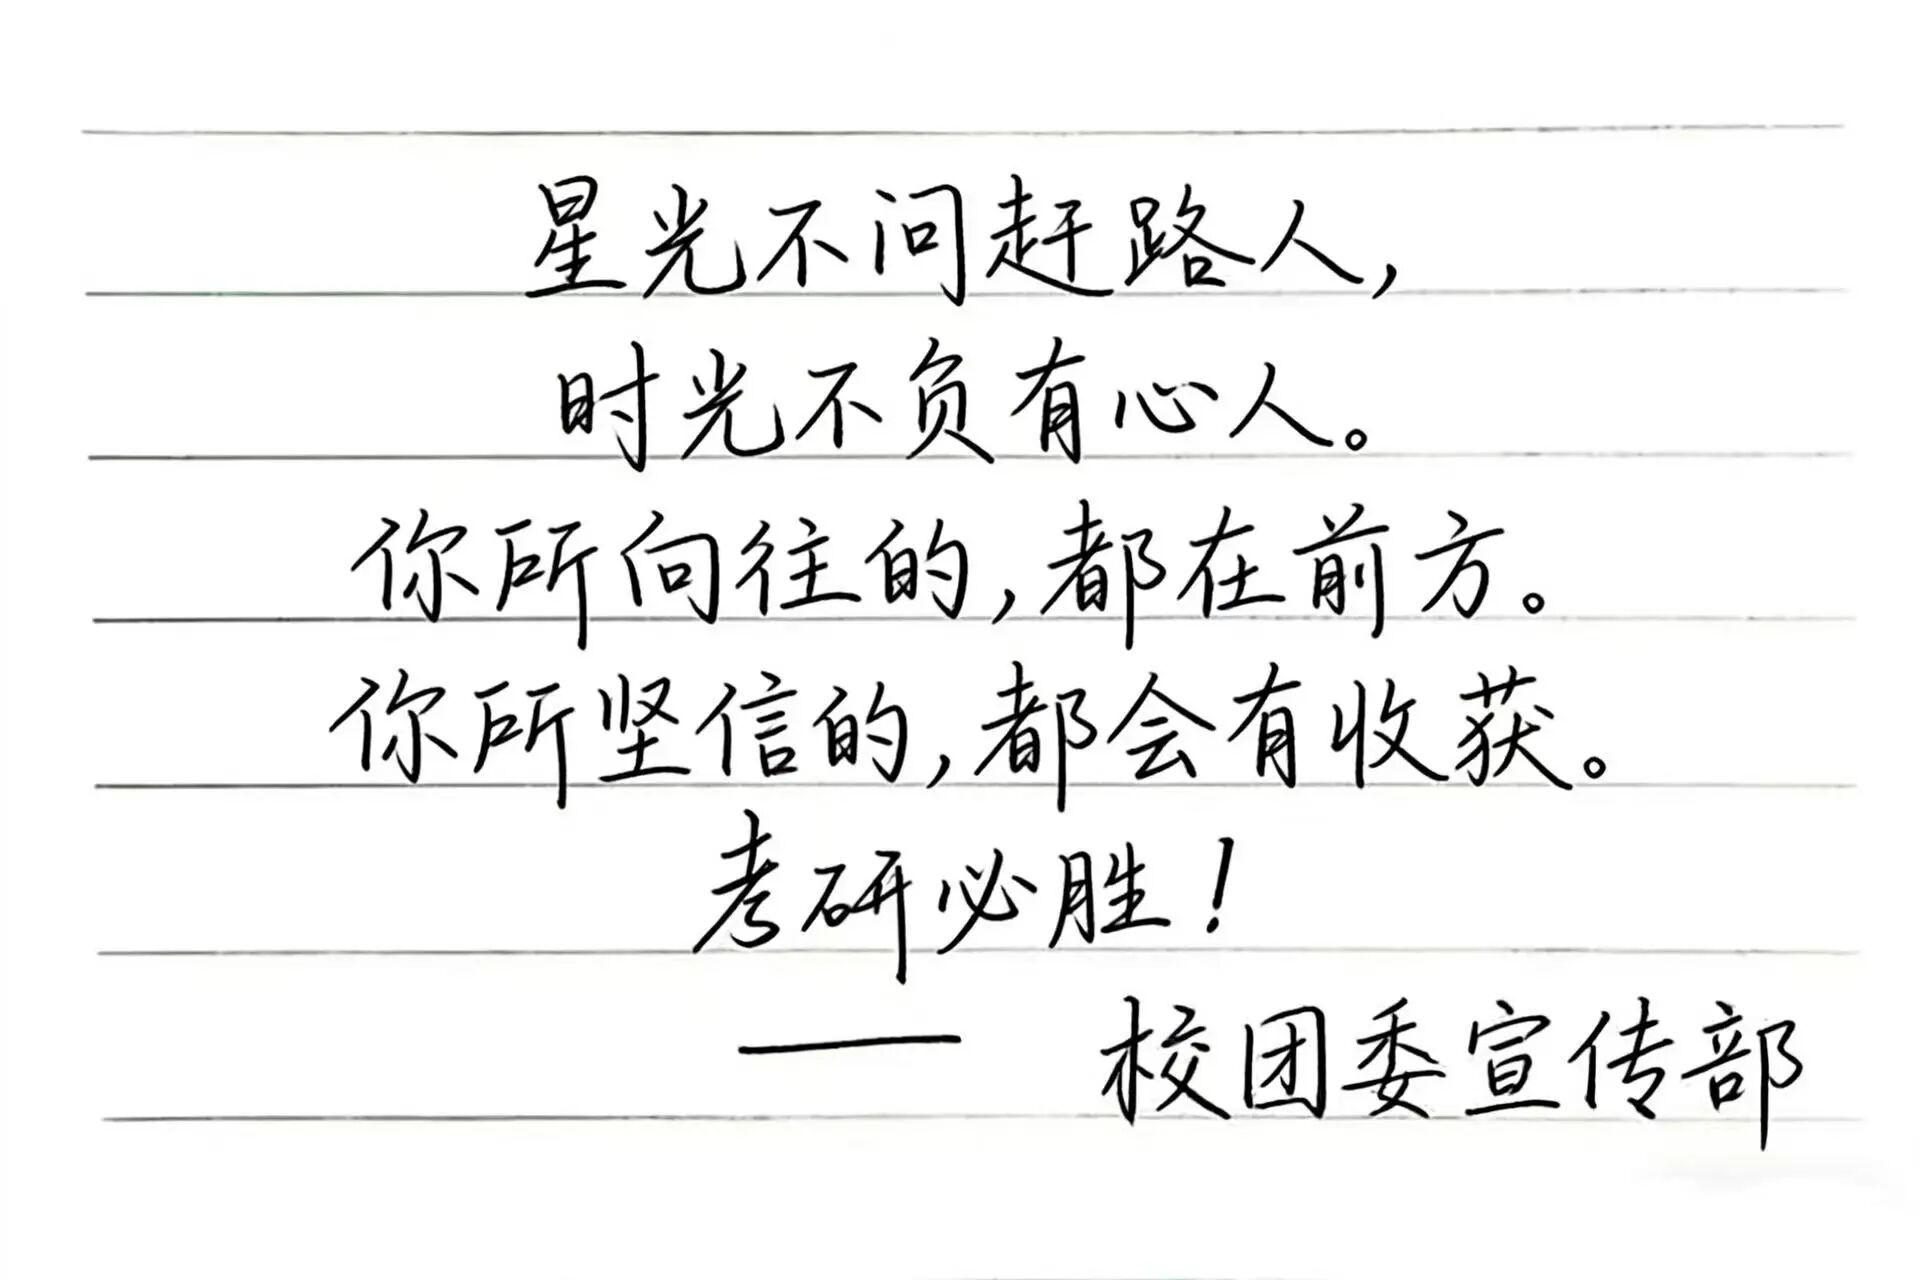 星光不问赶路人,
时光不负有心人。
你所向往的,都在前方。
你所坚信的,都会有收获。
考研必胜！
—— 校团委宣传部